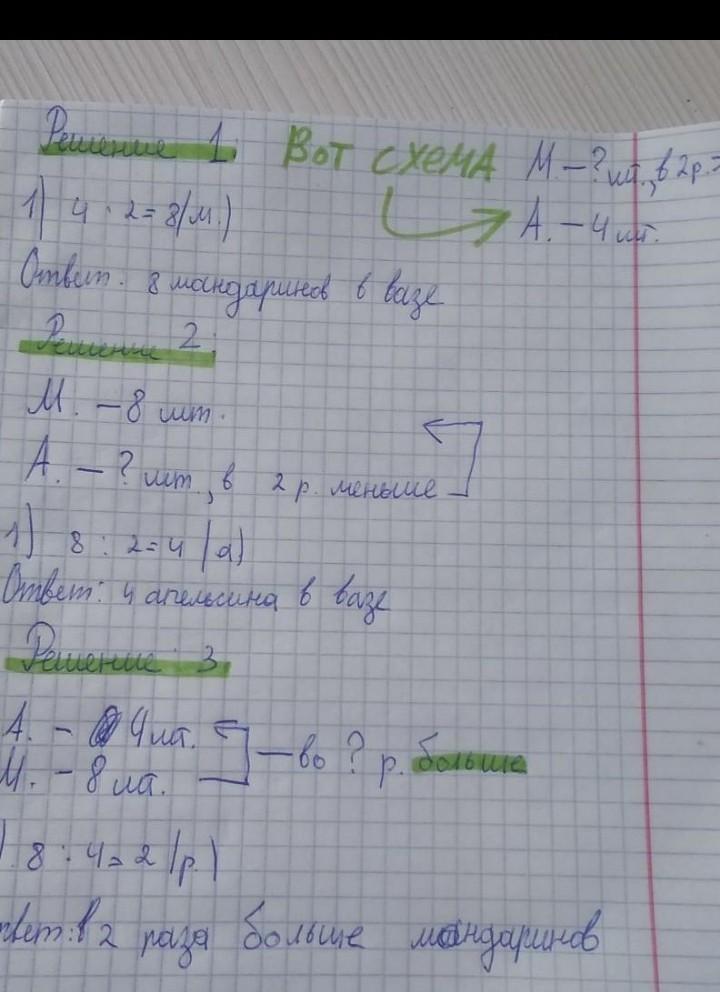 Решение 1. Вот схема М. – ? шт., в 2 р.
1) 4 · 2 = 8 (м.)
А. – 4 шт.
Ответ. 8 мандаринов в вазе
Решение 2.
М. – 8 шт.
А. – ? шт., в 2 р. меньше
1) 8 : 2 = 4 (а)
Ответ: 4 апельсина в вазе
Решение 3.
А. – 4 шт.
М. – 8 шт.
– во ? р. больше
) 8 : 4 = 2 (р.)
твет: в 2 раза больше мандаринов